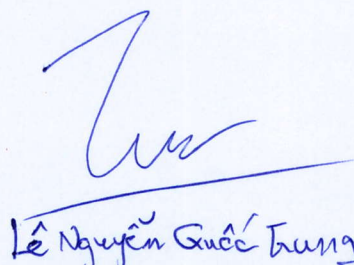 Lê Nguyễn Quốc Trung